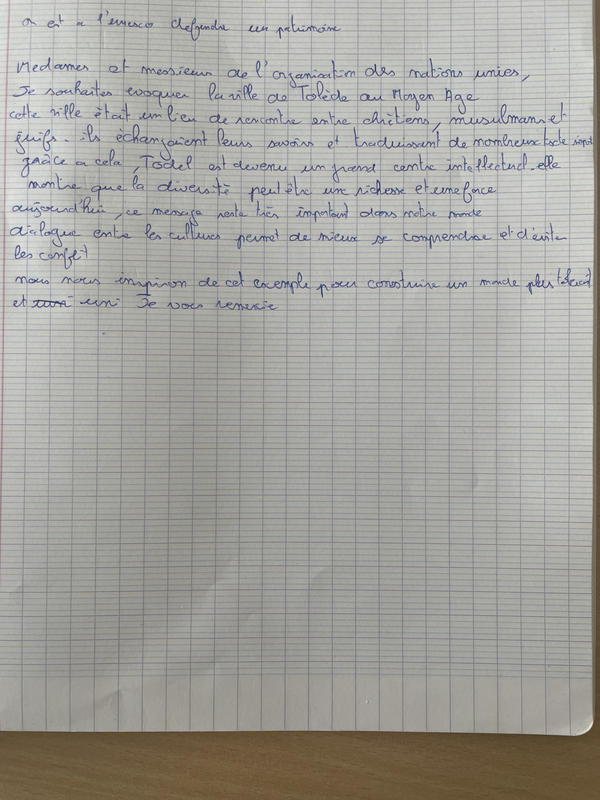 on est a l'unesco defendre un patrimoine
Medames et messieurs de l'organisation des nations unies,
Je souhaites evoquer la ville de Tolède au Moyen Age
cette ville était un lieu de rencontre entre chrétiens, musulmans et
juifs. ils échangaient leurs savoirs et traduissant de nombreux texte
grâce a cela, Todel est devenu un grand centre intellectuel. elle
montre que la diversité peut être une richesse et une force
aujourd'hui, ce message reste très important dans notre monde
dialogue entre les cultures permet de mieux se comprendre et d'évite
les conflit
nous nous inspiron de cet exemple pour construire un monde plus
et uni Je vous remercie